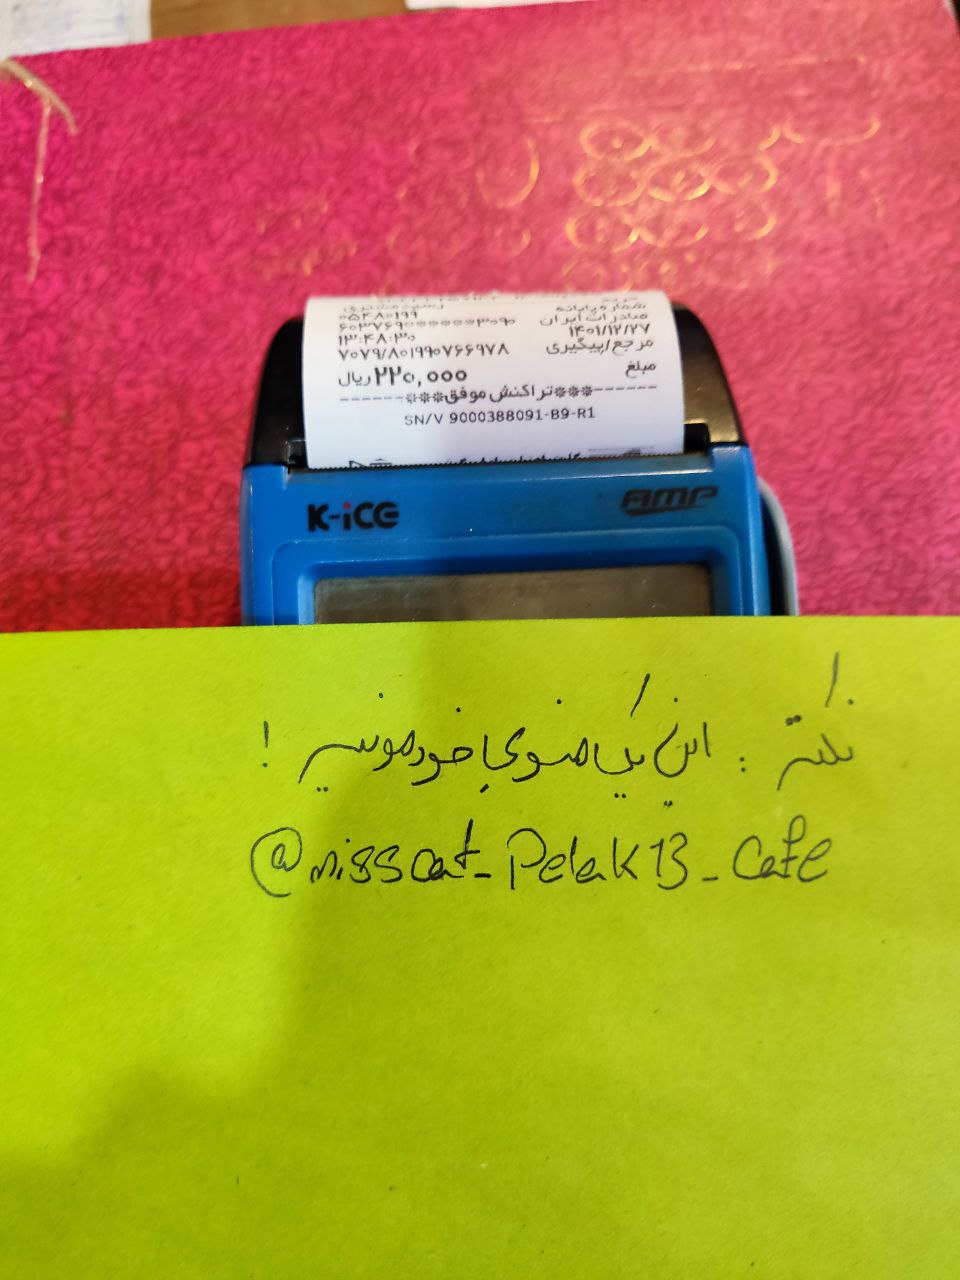 رسید مشتری
شماره پایانه ۰۵۴۸۰۱۹۹
صادرات ایران ۶۰۳۷۶۹******۳۰۹۰
۱۴۰۱/۱۲/۲۷ ۱۳:۴۸:۳۰
مرجع/پیگیری ۷۰۷۹/۸۰۱۹۹۰۷۶۶۹۷۸
مبلغ ۲۲۰,۰۰۰ ریال
------***تراکنش موفق***------
SN/V 9000388091-B9-R1
K-iCE AMP
نکته : این یکی منوی خودمونیه !
@misscat_Pelak13_Cafe